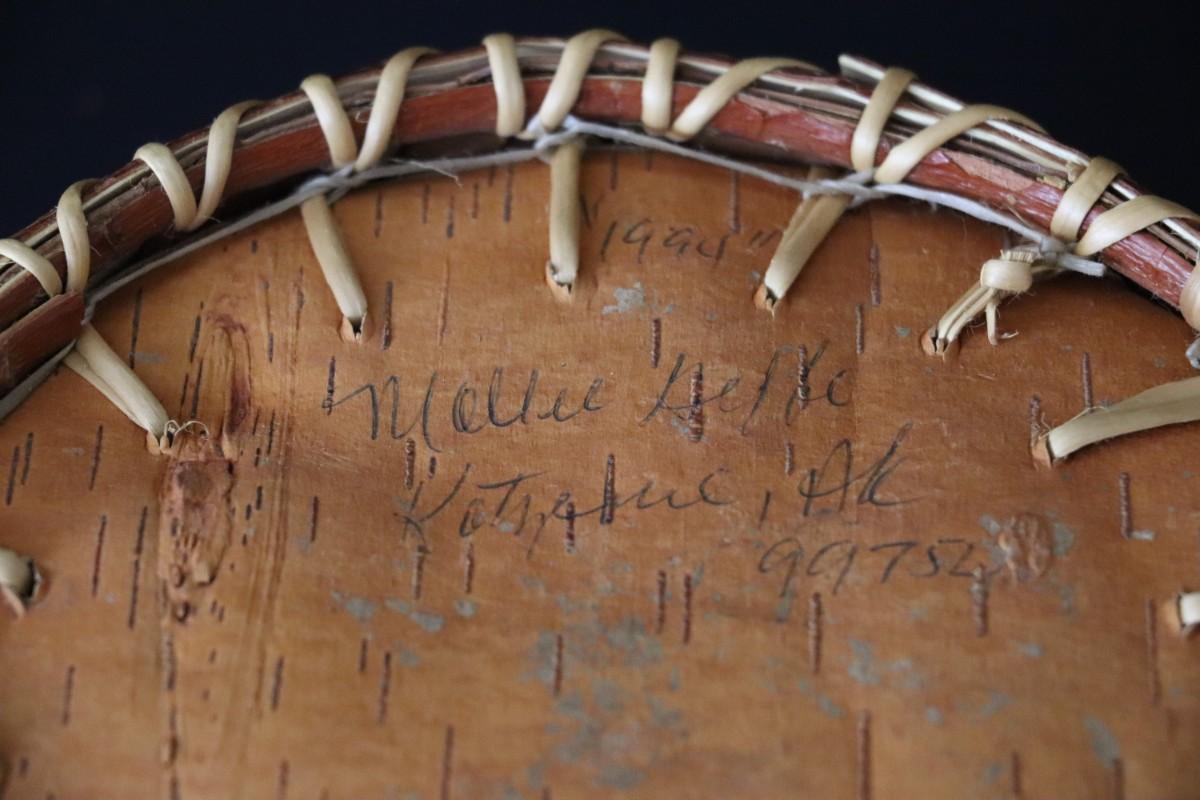 "1994"
Mollie
Kotzebue, Ak
99752